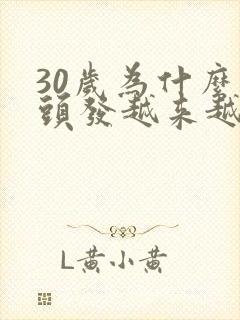 30歲為什麼
頭發越來越
L黃小黃